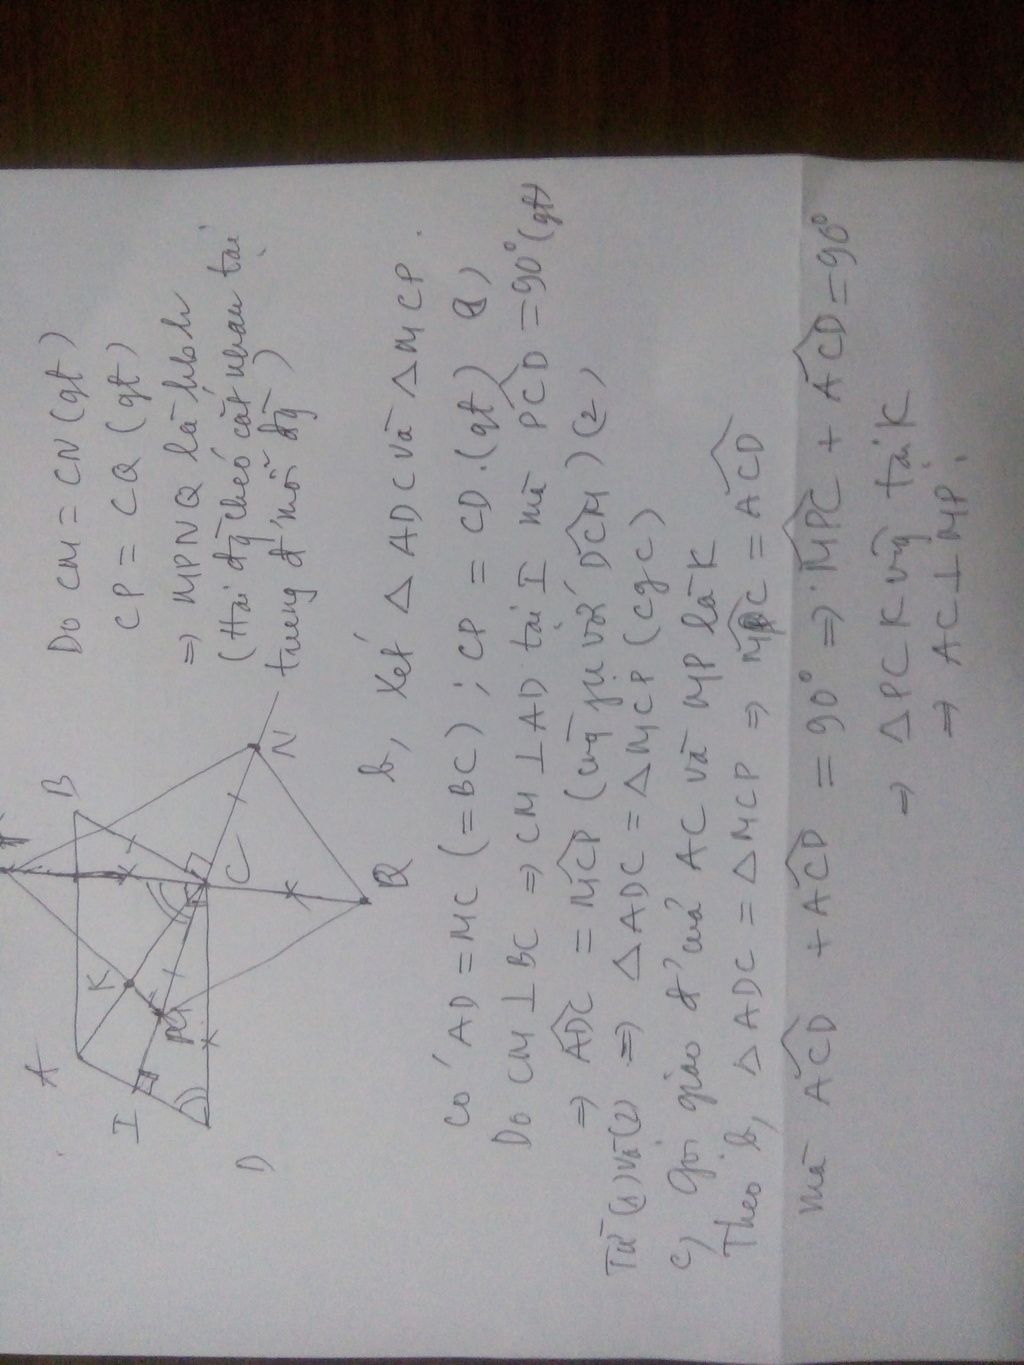 A
B
K
I
D
C
N
Q
Do CM = CN (gt)
CP = CQ (gt)
=> MPNQ là hbh
(Hai đg chéo cắt nhau tại
trung đ' mỗi đg)
b, Xét △ ADC và △ MCP.
Có AD = MC (= BC) ; CP = CD. (gt) (1)
Do CM ⊥ BC => CM ⊥ AD tại I mà PCD = 90° (gt)
=> ADC = MCP (cùng phụ với DCM) (2)
Từ (1) và (2) => △ ADC = △ MCP (cgc)
c) Gọi giao đ' của AC và MP là K
Theo b, △ ADC = △ MCP => MPC = ACD
mà ACD + ACP = 90° => MPC + ACD = 90°
=> △ PCK vg tại K
=> AC ⊥ MP.